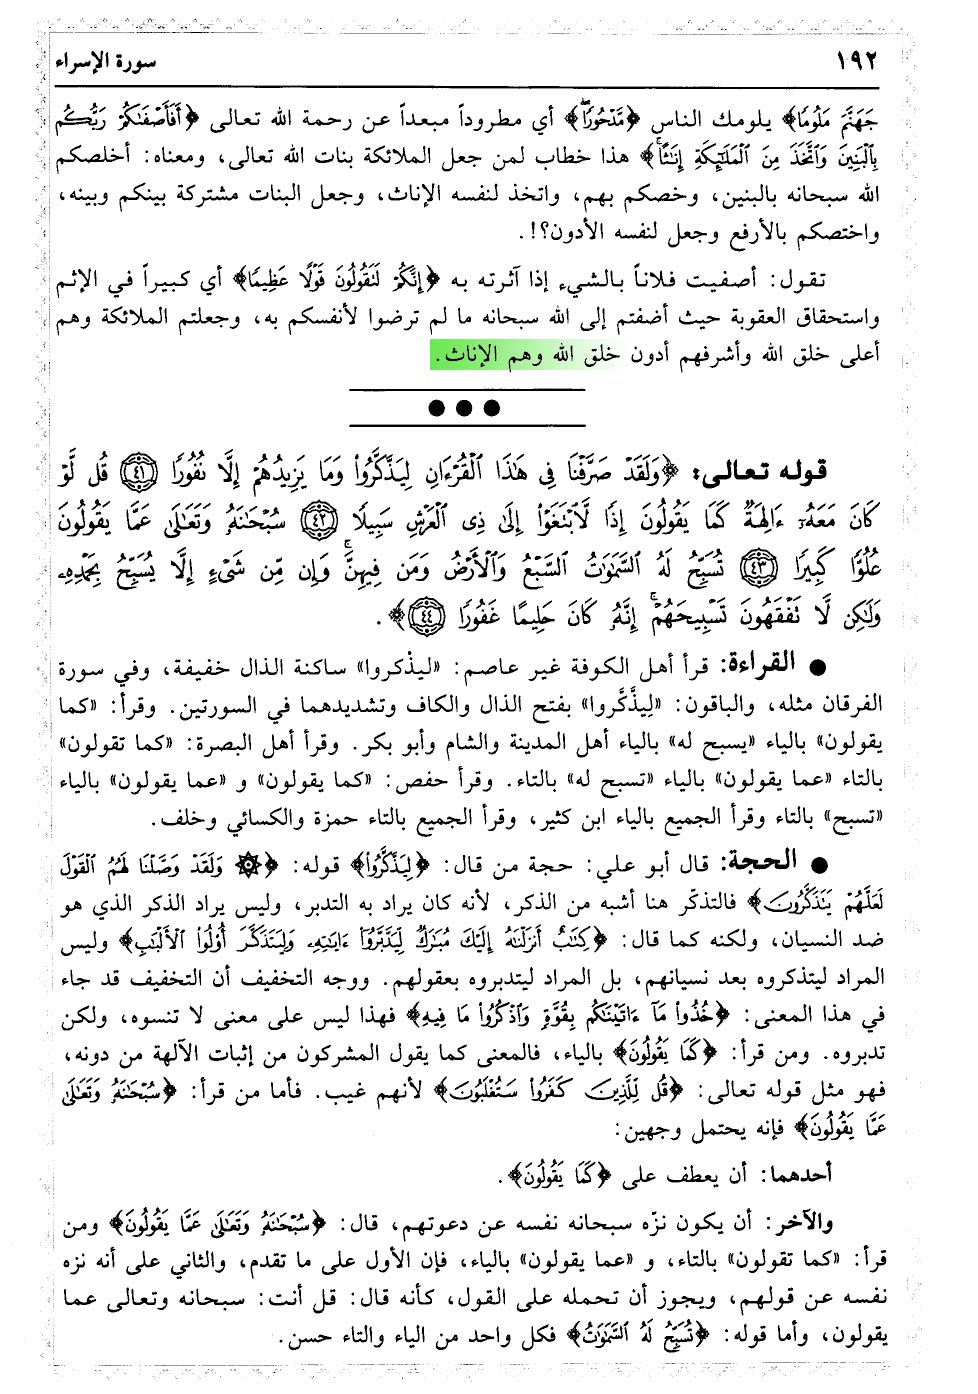 ١٩٢
سورة الإسراء
جَهَنَّمَ مَلُومًا﴾ يلومك الناس ﴿مَّدْحُورًا﴾ أي مطروداً مبعداً عن رحمة الله تعالى ﴿أَفَأَصْفَىٰكُمْ رَبُّكُم
بِالْبَنِينَ وَاتَّخَذَ مِنَ الْمَلَٰٓئِكَةِ إِنَٰثًا﴾ هذا خطاب لمن جعل الملائكة بنات الله تعالى، ومعناه: أخلصكم
الله سبحانه بالبنين، وخصكم بهم، واتخذ لنفسه الإناث، وجعل البنات مشتركة بينكم وبينه،
واختصكم بالأرفع وجعل لنفسه الأدون؟!.
تقول: أصفيت فلاناً بالشيء إذا آثرته به ﴿إِنَّكُمْ لَتَقُولُونَ قَوْلًا عَظِيمًا﴾ أي كبيراً في الإثم
واستحقاق العقوبة حيث أضفتم إلى الله سبحانه ما لم ترضوا لأنفسكم به، وجعلتم الملائكة وهم
أعلى خلق الله وأشرفهم أدون خلق الله وهم الإناث.
● ● ●
قوله تعالى: ﴿وَلَقَدْ صَرَّفْنَا فِى هَٰذَا الْقُرْءَانِ لِيَذَّكَّرُوا۟ وَمَا يَزِيدُهُمْ إِلَّا نُفُورًا ٤١ قُل لَّوْ
كَانَ مَعَهُۥٓ ءَالِهَةٌ كَمَا يَقُولُونَ إِذًا لَّابْتَغَوْا۟ إِلَىٰ ذِى الْعَرْشِ سَبِيلًا ٤٢ سُبْحَٰنَهُۥ وَتَعَٰلَىٰ عَمَّا يَقُولُونَ
عُلُوًّا كَبِيرًا ٤٣ تُسَبِّحُ لَهُ السَّمَٰوَٰتُ السَّبْعُ وَالْأَرْضُ وَمَن فِيهِنَّ ۚ وَإِن مِّن شَىْءٍ إِلَّا يُسَبِّحُ بِحَمْدِهِۦ
وَلَٰكِن لَّا تَفْقَهُونَ تَسْبِيحَهُمْ ۗ إِنَّهُۥ كَانَ حَلِيمًا غَفُورًا ٤٤﴾.
● القراءة: قرأ أهل الكوفة غير عاصم: «ليذْكروا» ساكنة الذال خفيفة، وفي سورة
الفرقان مثله، والباقون: «لِيذَّكَّروا» بفتح الذال والكاف وتشديدهما في السورتين. وقرأ: «كما
يقولون» بالياء «يسبح له» بالياء أهل المدينة والشام وأبو بكر. وقرأ أهل البصرة: «كما تقولون»
بالتاء «عما يقولون» بالياء «تسبح له» بالتاء. وقرأ حفص: «كما يقولون» و «عما يقولون» بالياء
«تسبح» بالتاء وقرأ الجميع بالياء ابن كثير، وقرأ الجميع بالتاء حمزة والكسائي وخلف.
● الحجة: قال أبو علي: حجة من قال: ﴿لِيَذَّكَّرُوا۟﴾ قوله: ﴿۞ وَلَقَدْ وَصَّلْنَا لَهُمُ الْقَوْلَ
لَعَلَّهُمْ يَتَذَكَّرُونَ﴾ فالتذكّر هنا أشبه من الذكر، لأنه كان يراد به التدبر، وليس يراد الذكر الذي هو
ضد النسيان، ولكنه كما قال: ﴿كِتَٰبٌ أَنزَلْنَٰهُ إِلَيْكَ مُبَٰرَكٌ لِّيَدَّبَّرُوٓا۟ ءَايَٰتِهِۦ وَلِيَتَذَكَّرَ أُو۟لُوا۟ الْأَلْبَٰبِ﴾ وليس
المراد ليتذكروه بعد نسيانهم، بل المراد ليتدبروه بعقولهم. ووجه التخفيف أن التخفيف قد جاء
في هذا المعنى: ﴿خُذُوا۟ مَآ ءَاتَيْنَٰكُم بِقُوَّةٍ وَاذْكُرُوا۟ مَا فِيهِ﴾ فهذا ليس على معنى لا تنسوه، ولكن
تدبروه. ومن قرأ: ﴿كَمَا يَقُولُونَ﴾ بالياء، فالمعنى كما يقول المشركون من إثبات الآلهة من دونه،
فهو مثل قوله تعالى: ﴿قُل لِّلَّذِينَ كَفَرُوا۟ سَتُغْلَبُونَ﴾ لأنهم غيب. فأما من قرأ: ﴿سُبْحَٰنَهُۥ وَتَعَٰلَىٰ
عَمَّا يَقُولُونَ﴾ فإنه يحتمل وجهين:
أحدهما: أن يعطف على ﴿كَمَا يَقُولُونَ﴾.
والآخر: أن يكون نزّه سبحانه نفسه عن دعوتهم، قال: ﴿سُبْحَٰنَهُۥ وَتَعَٰلَىٰ عَمَّا يَقُولُونَ﴾ ومن
قرأ: «كما تقولون» بالتاء، و «عما يقولون» بالياء، فإن الأول على ما تقدم، والثاني على أنه نزه
نفسه عن قولهم، ويجوز أن تحمله على القول، كأنه قال: قل أنت: سبحانه وتعالى عما
يقولون، وأما قوله: ﴿تُسَبِّحُ لَهُ السَّمَٰوَٰتُ﴾ فكل واحد من الياء والتاء حسن.